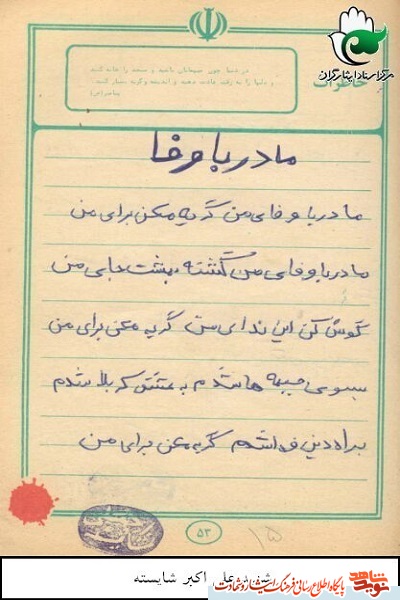 مرکز اسناد ایثارگران
خاطرات
در دنیا چون میهمانان باشید و مسجد را خانه کنید
و دلها را به رقت عادت دهید و اندیشه و گریه بسیار کنید.
پیامبر (ص)
مادر با وفا
مادر با وفای من گریه مکن برای من
مادر با وفای من گشته بهشت جای من
گوش کن این ندای من گریه مکن برای من
بسوی جبهه ها شدم به عشق کربلا شدم
براه دین فدا شدم گریه مکن برای من
۵۳
۱۵
شهید علی اکبر شایسته
نوید شاهد
پایگاه اطلاع رسانی فرهنگ ایثار و شهادت